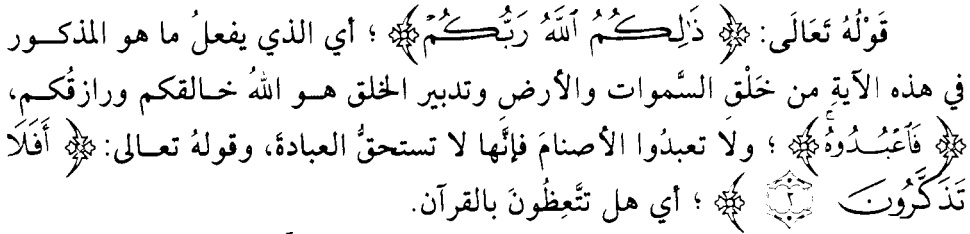 قَوْلُهُ تَعَالَى: ﴿ ذَٰلِكُمُ ٱللَّهُ رَبُّكُمْ ﴾ ؛ أي الذي يفعلُ ما هو المذكــور
في هذه الآيةِ من خَلْقِ السَّموات والأرضِ وتدبير الخلق هــو اللهُ خــالقكم ورازقُكــم،
﴿ فَٱعْبُــدُوهُ ۚ ﴾ ؛ ولا تعبدُوا الأصنامَ فإنَّها لا تستحقُّ العبادةَ، وقولهُ تعــالى: ﴿ أَفَلَا
تَذَكَّرُونَ ٣ ﴾ ؛ أي هل تتَّعِظُونَ بالقرآن.